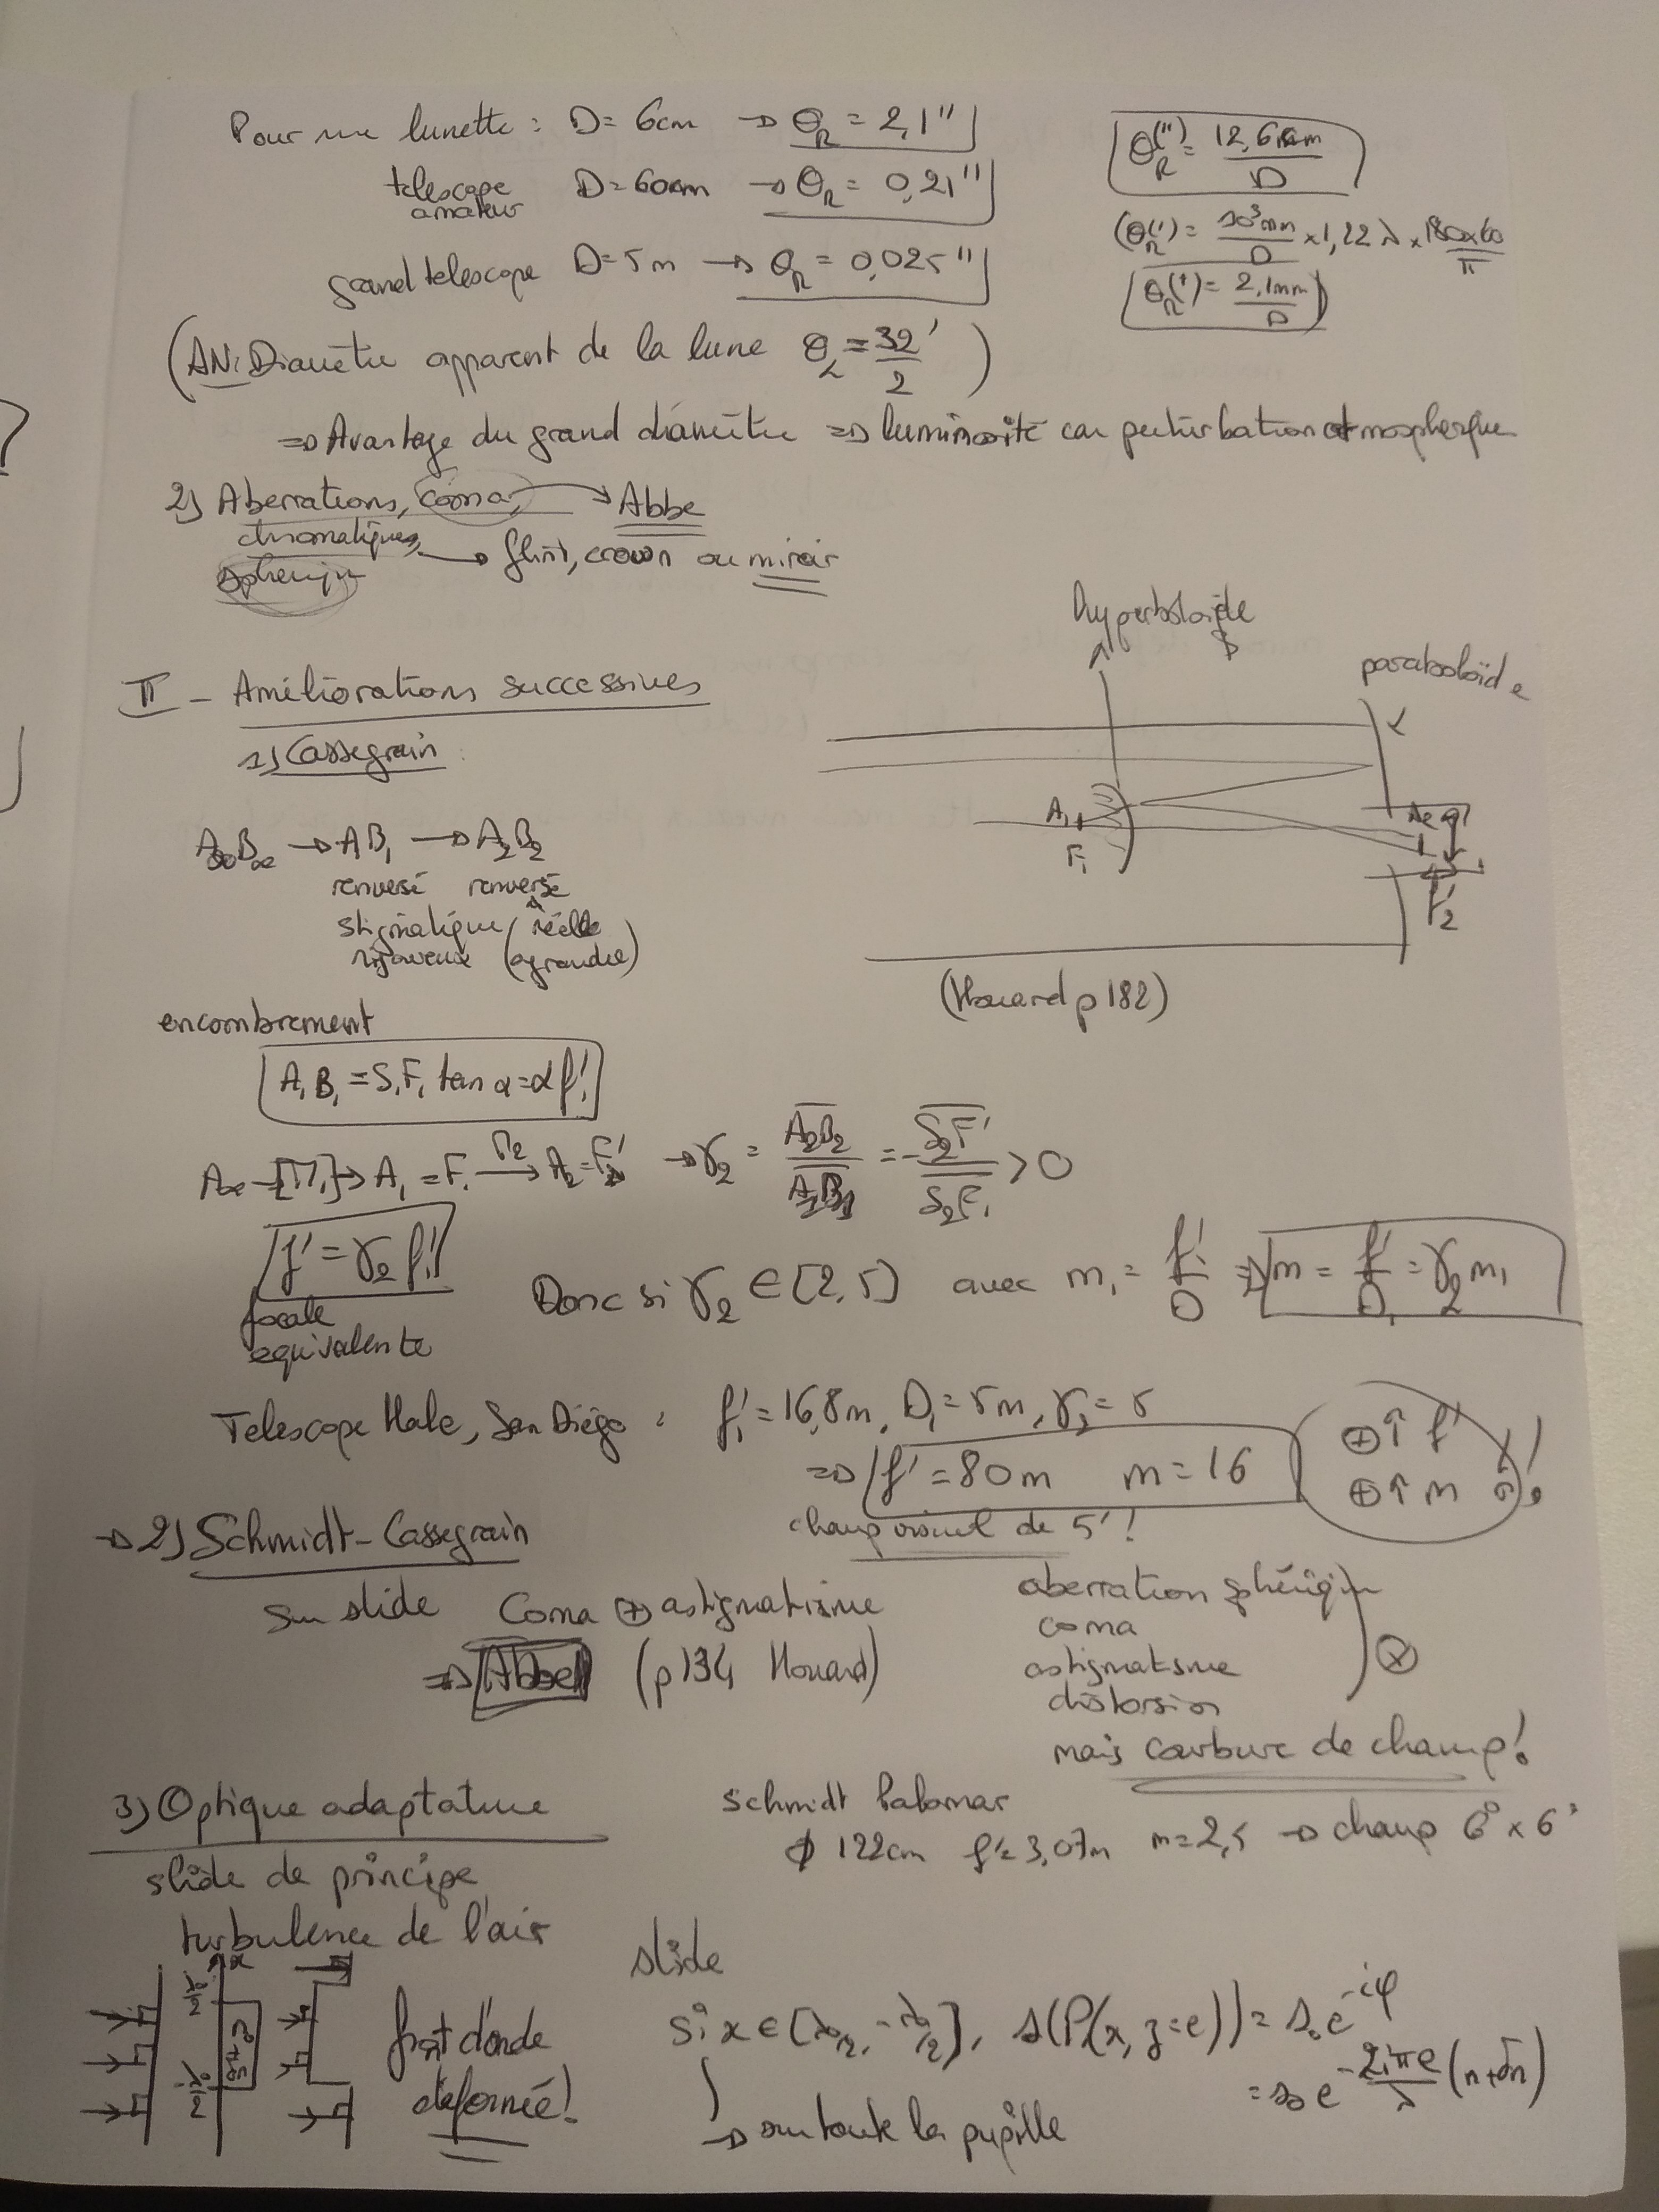 Pour une lunette : D = 6cm → θR = 2,1"
θR(") = 12,6 cm / D
telescope amateur D = 60cm → θR = 0,21"
(θR(') = 10³mm / D × 1,22 λ × 180×60 / π
grand telescope D = 5m → θR = 0,025"
θR(') = 2,1mm / D)
(AN: Diamètre apparent de la lune θL = 32' / 2)
⇒ Avantage du grand diamètre ⇒ luminosité car perturbation atmospherique
2) Aberrations, coma, → Abbe
chromatiques, → flint, crown ou miroir
spherique
hyperboloïde
paraboloïde
II - Améliorations successives
1) Cassegrain :
A∞B∞ → AB1 → A2B2
renversé renversé
stigmatique réelle
rigoureux (agrandie)
A1 F1
F'2
(Houard p 182)
encombrement
A1B1 = S1F1 tan α = α f'1
A∞ –[M1]→ A1 = F1 –M2→ A2 = F'2 → γ2 = A2B2 / A1B1 = - S2F' / S2F1 > 0
f' = γ2 f'1
focale
equivalente
Donc si γ2 ∈ [2,5] avec m1 = f'1 / D ⇒ m = f' / D1 = γ2 m1
Telescope Hale, San Diégo : f'1 = 16,8m, D1 = 5m, γ2 = 5
⇒ f' = 80m m = 16
⊕ ↑ f'
⊕ ↑ m !
champ visuel de 5' !
→ 2) Schmidt-Cassegrain
sur slide Coma ⊕ astigmatisme
⇒ Abbe (p134 Houard)
aberration sphérique
coma
astigmatisme
distorsion
mais courbure de champ !
3) Optique adaptative
slide de principe
Schmidt Palomar
ϕ 122cm f' = 3,07m m = 2,5 → champ 6° × 6°
turbulence de l'air
slide
x
λ0/2
-λ0/2
front d'onde
deformée !
si x ∈ [λ0/2, -λ0/2], s(P(x, z=e)) = s0 e^-iφ
= s0 e^-2iπe/λ (n+δn)
→ sur toute la pupille